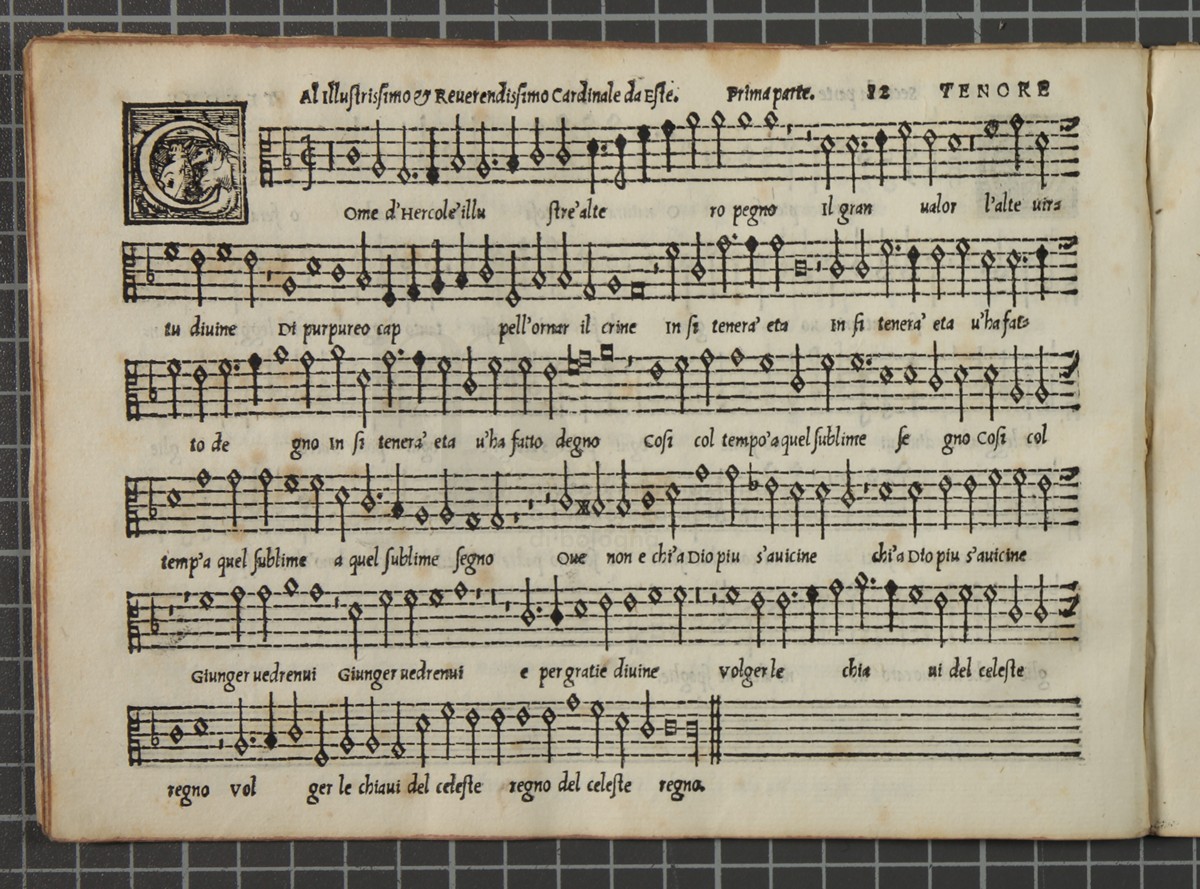 Al Illustrissimo & Reuerendissimo Cardinale da Este. Prima parte. 12 TENORE
COme d'Hercole'illu stre'alte ro pegno Il gran ualor l'alte uirtu
tu diuine Di purpureo cap pell'ornar il crine In si tenera' eta In si tenera' eta u'ha fat-
to de gno In si tenera' eta u'ha fatto degno Cosi col tempo'a quel sublime se gno Cosi col
temp'a quel sublime a quel sublime segno Oue non e chi'a Dio piu s'auicine chi'a Dio piu s'auicine
Giunger uedrenui Giunger uedrenui e per gratie diuine volger le chia ui del celeste
regno vol ger le chiaui del celeste regno del celeste regno.